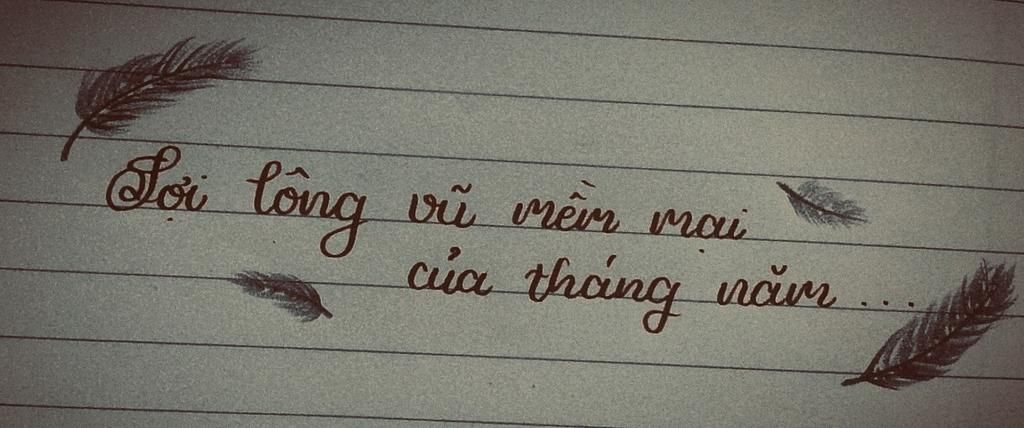 Sợi lông vũ mềm mại
của tháng năm ...